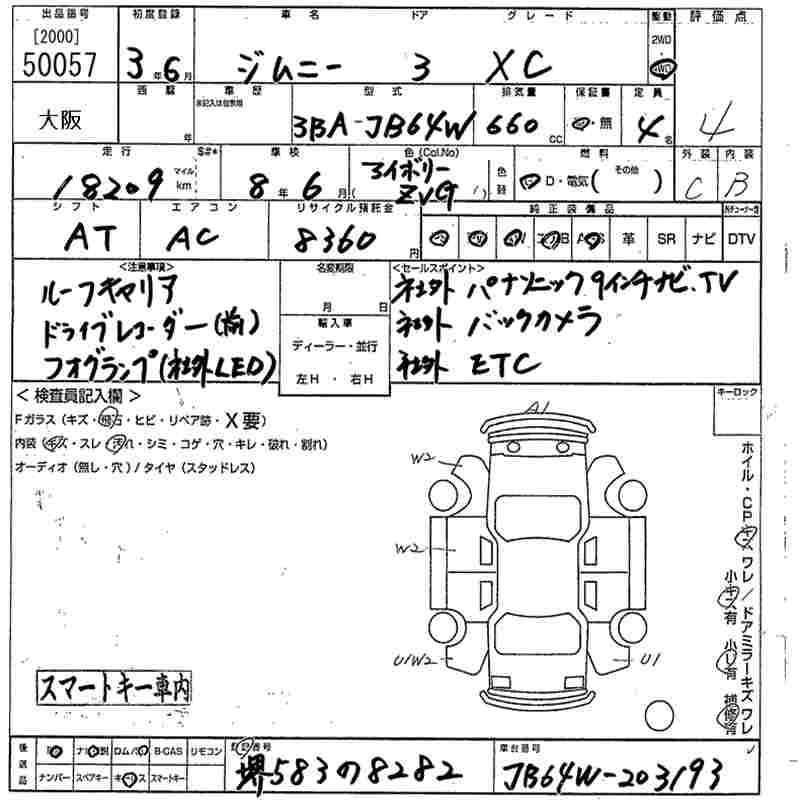 出品番号 初度登録 車名 ドア グレード 駆動 評価点
[2000]
50057 3年6月 ジムニー 3 XC 2WD・4WD
大阪 西暦 年 車歴 ※記入は自家用 型式 排気量 保証書 定員
3BA-JB64W 660cc 有・無 4名 4
走行 S#* 車検 色(Col.No) 燃料 外装 内装
18209 マイル km 8年6月 アイボリー ZVG 色替 G・D・電気( その他 ) C B
シフト エアコン リサイクル預託金 純正装備品
AT AC 8360円 革 SR ナビ DTV
<注意事項> 名変期限 <セールスポイント>
ルーフキャリア 月 日 社外 パナソニック9インチナビ、TV
ドライブレコーダー(前) 輸入車 社外 バックカメラ
フォグランプ(社外LED) ディーラー・並行 社外 ETC
左H・右H
<検査員記入欄> キーロック
Fガラス(キズ・飛石・ヒビ・リペア跡・X要)
内装(キズ・スレ・汚れ・シミ・コゲ・穴・キレ・破れ・割れ)
オーディオ(無し・穴)/タイヤ(スタッドレス)
A1
W2
W2
U1W2 U1
ホイル・CPキズ ワレ/ドアミラーキズ ワレ
小キズ有 小凹有 補修有
スマートキー車内
後送品 ロムパス B-CAS リモコン 登録番号 車台番号
ナンバー スペアキー キーレス スマートキー 堺583の8282 JB64W-203193